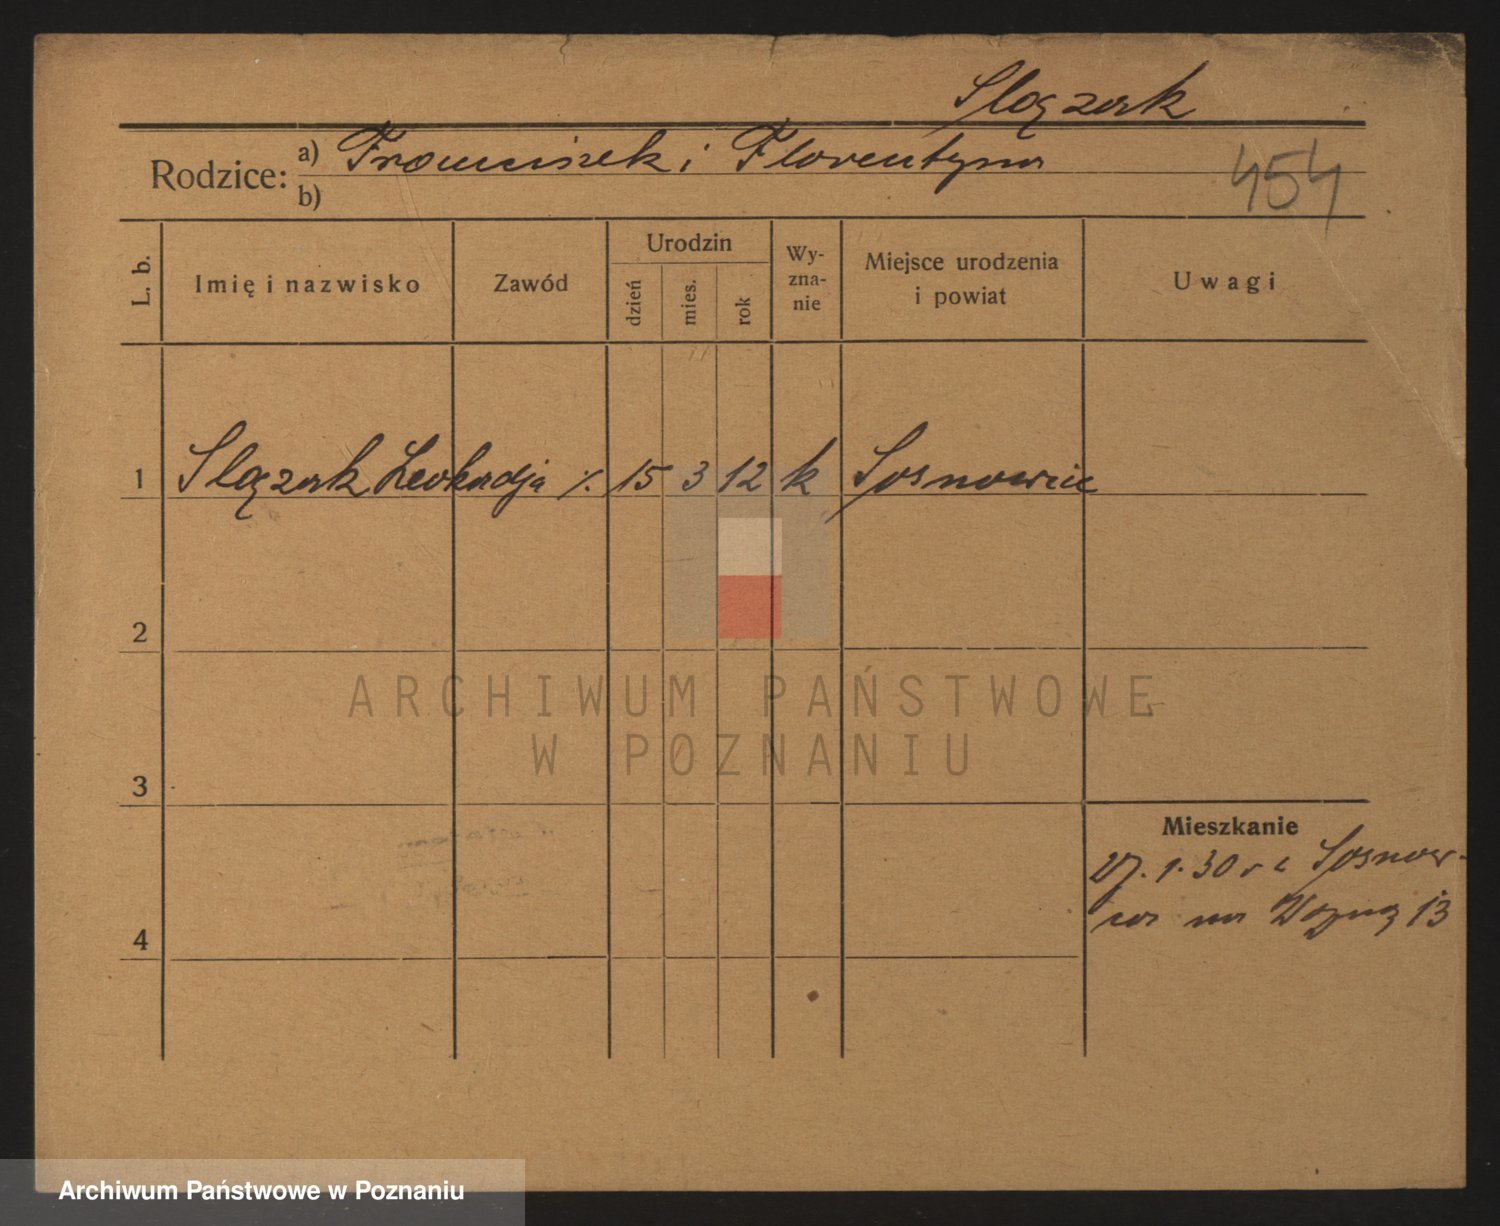 Ślązak
Rodzice: a) Franciszek i Florentyna
454
b)
L. b.
Imię i nazwisko
Zawód
Urodzin
dzień
mies.
rok
Wy-
zna-
nie
Miejsce urodzenia
i powiat
Uwagi
1 Ślązak Leokadja /. 15 3 12 k Sosnowiec
2
ARCHIWUM PAŃSTWOWE
W POZNANIU
3
Mieszkanie
27. 1. 30 r z Sosnow-
ca na 13
4
Archiwum Państwowe w Poznaniu